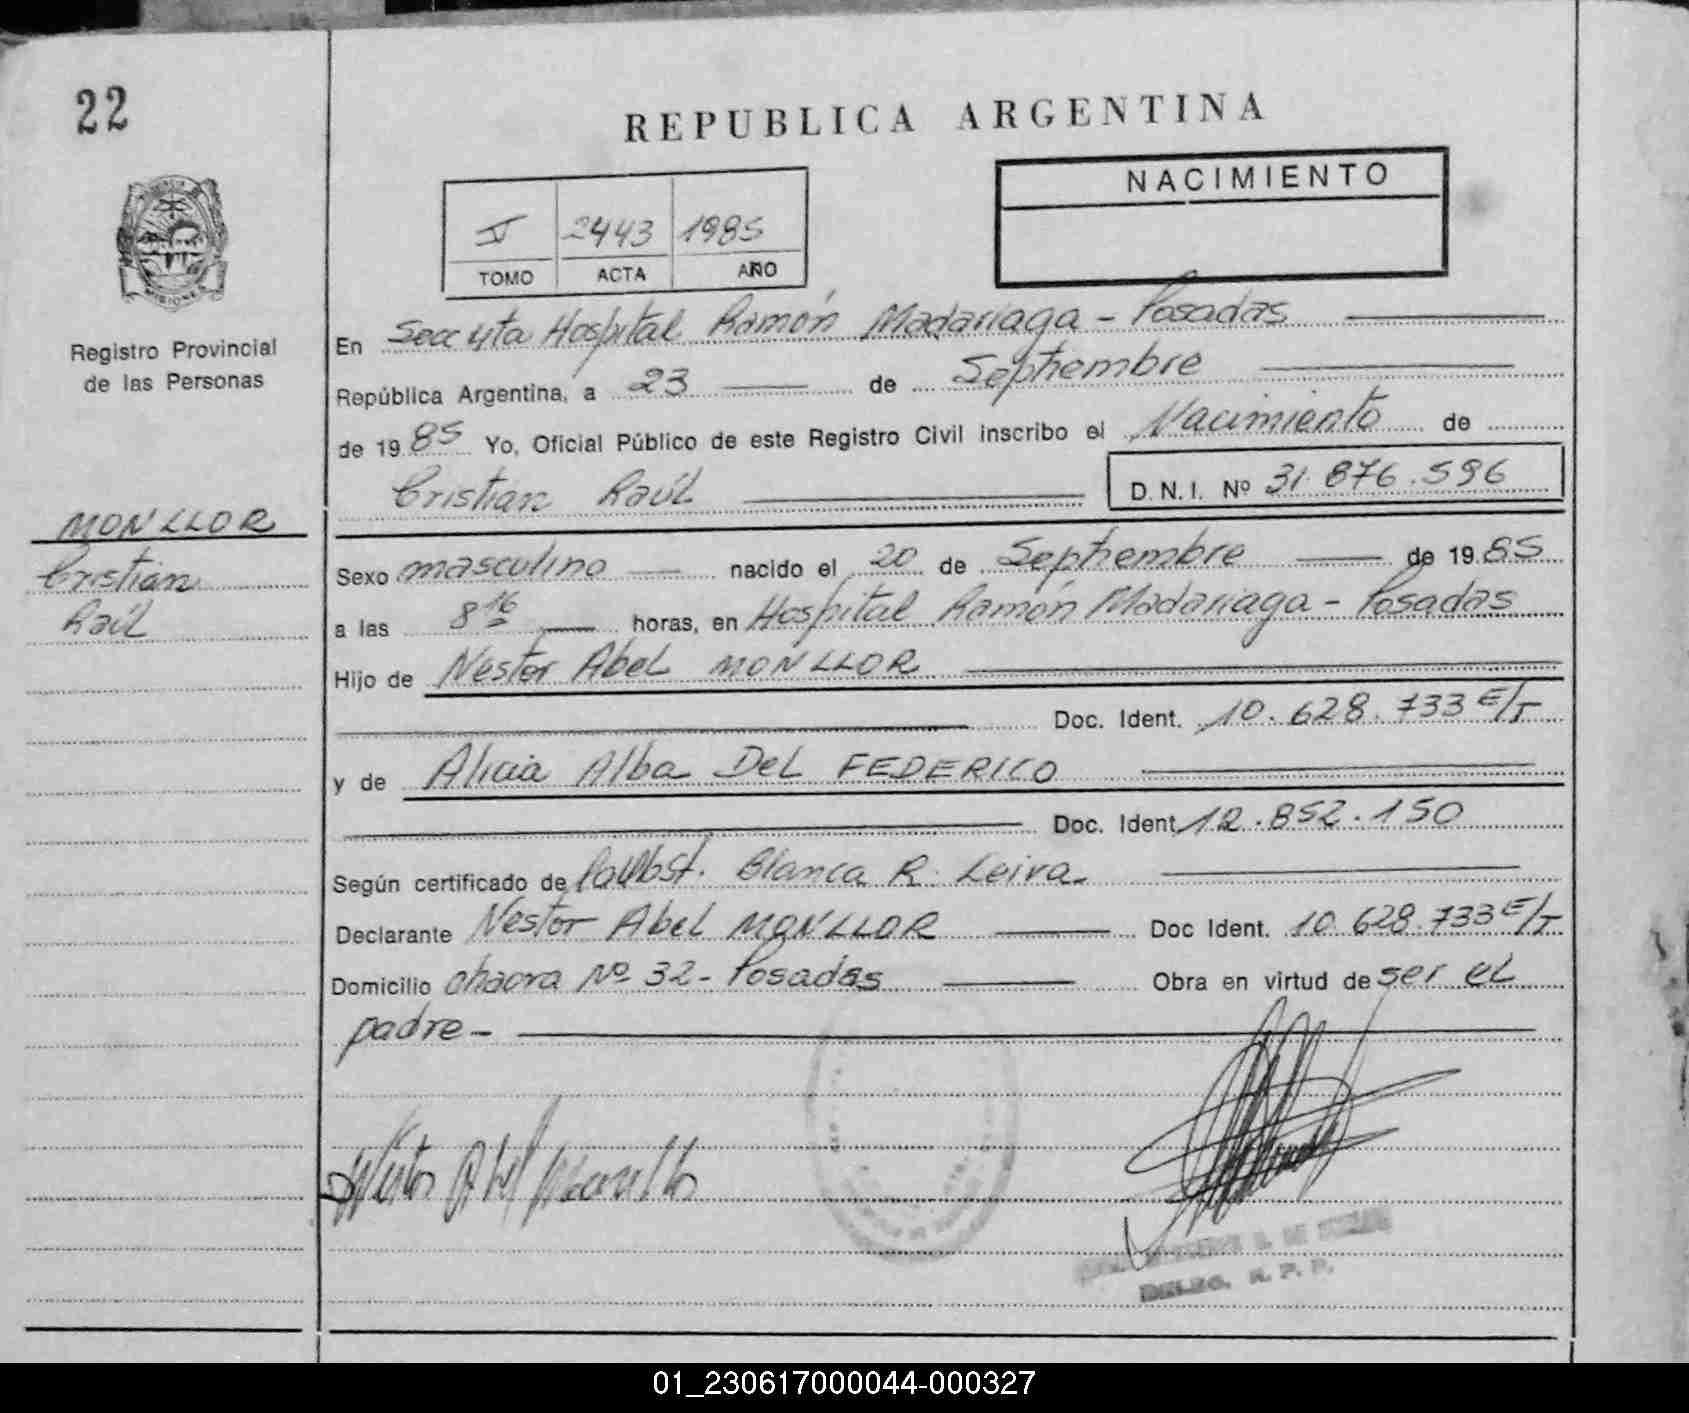 22
REPUBLICA ARGENTINA
NACIMIENTO
V 2443 1985
TOMO ACTA AÑO
MISIONES
Registro Provincial
de las Personas
En Secc 4ta Hospital Ramón Madariaga - Posadas
República Argentina, a 23 de Septiembre
de 1985 Yo, Oficial Público de este Registro Civil inscribo el Nacimiento de
Cristian Raúl D.N.I. Nº 31.876.596
MONLLOR
Cristian
Raúl
Sexo masculino nacido el 20 de Septiembre de 1985
a las 8 16 horas, en Hospital Ramón Madariaga - Posadas
Hijo de Nestor Abel MONLLOR
Doc. Ident. 10.628.733 E/T
y de Alicia Alba Del FEDERICO
Doc. Ident. 12.852.150
Según certificado de Obst. Blanca R. Leiva.
Declarante Nestor Abel MONLLOR Doc Ident. 10.628.733 E/T
Domicilio chacra Nº 32 - Posadas Obra en virtud de ser el
padre -
Nestor Abel Monllor
DELEG. R. P. P.
01_230617000044-000327